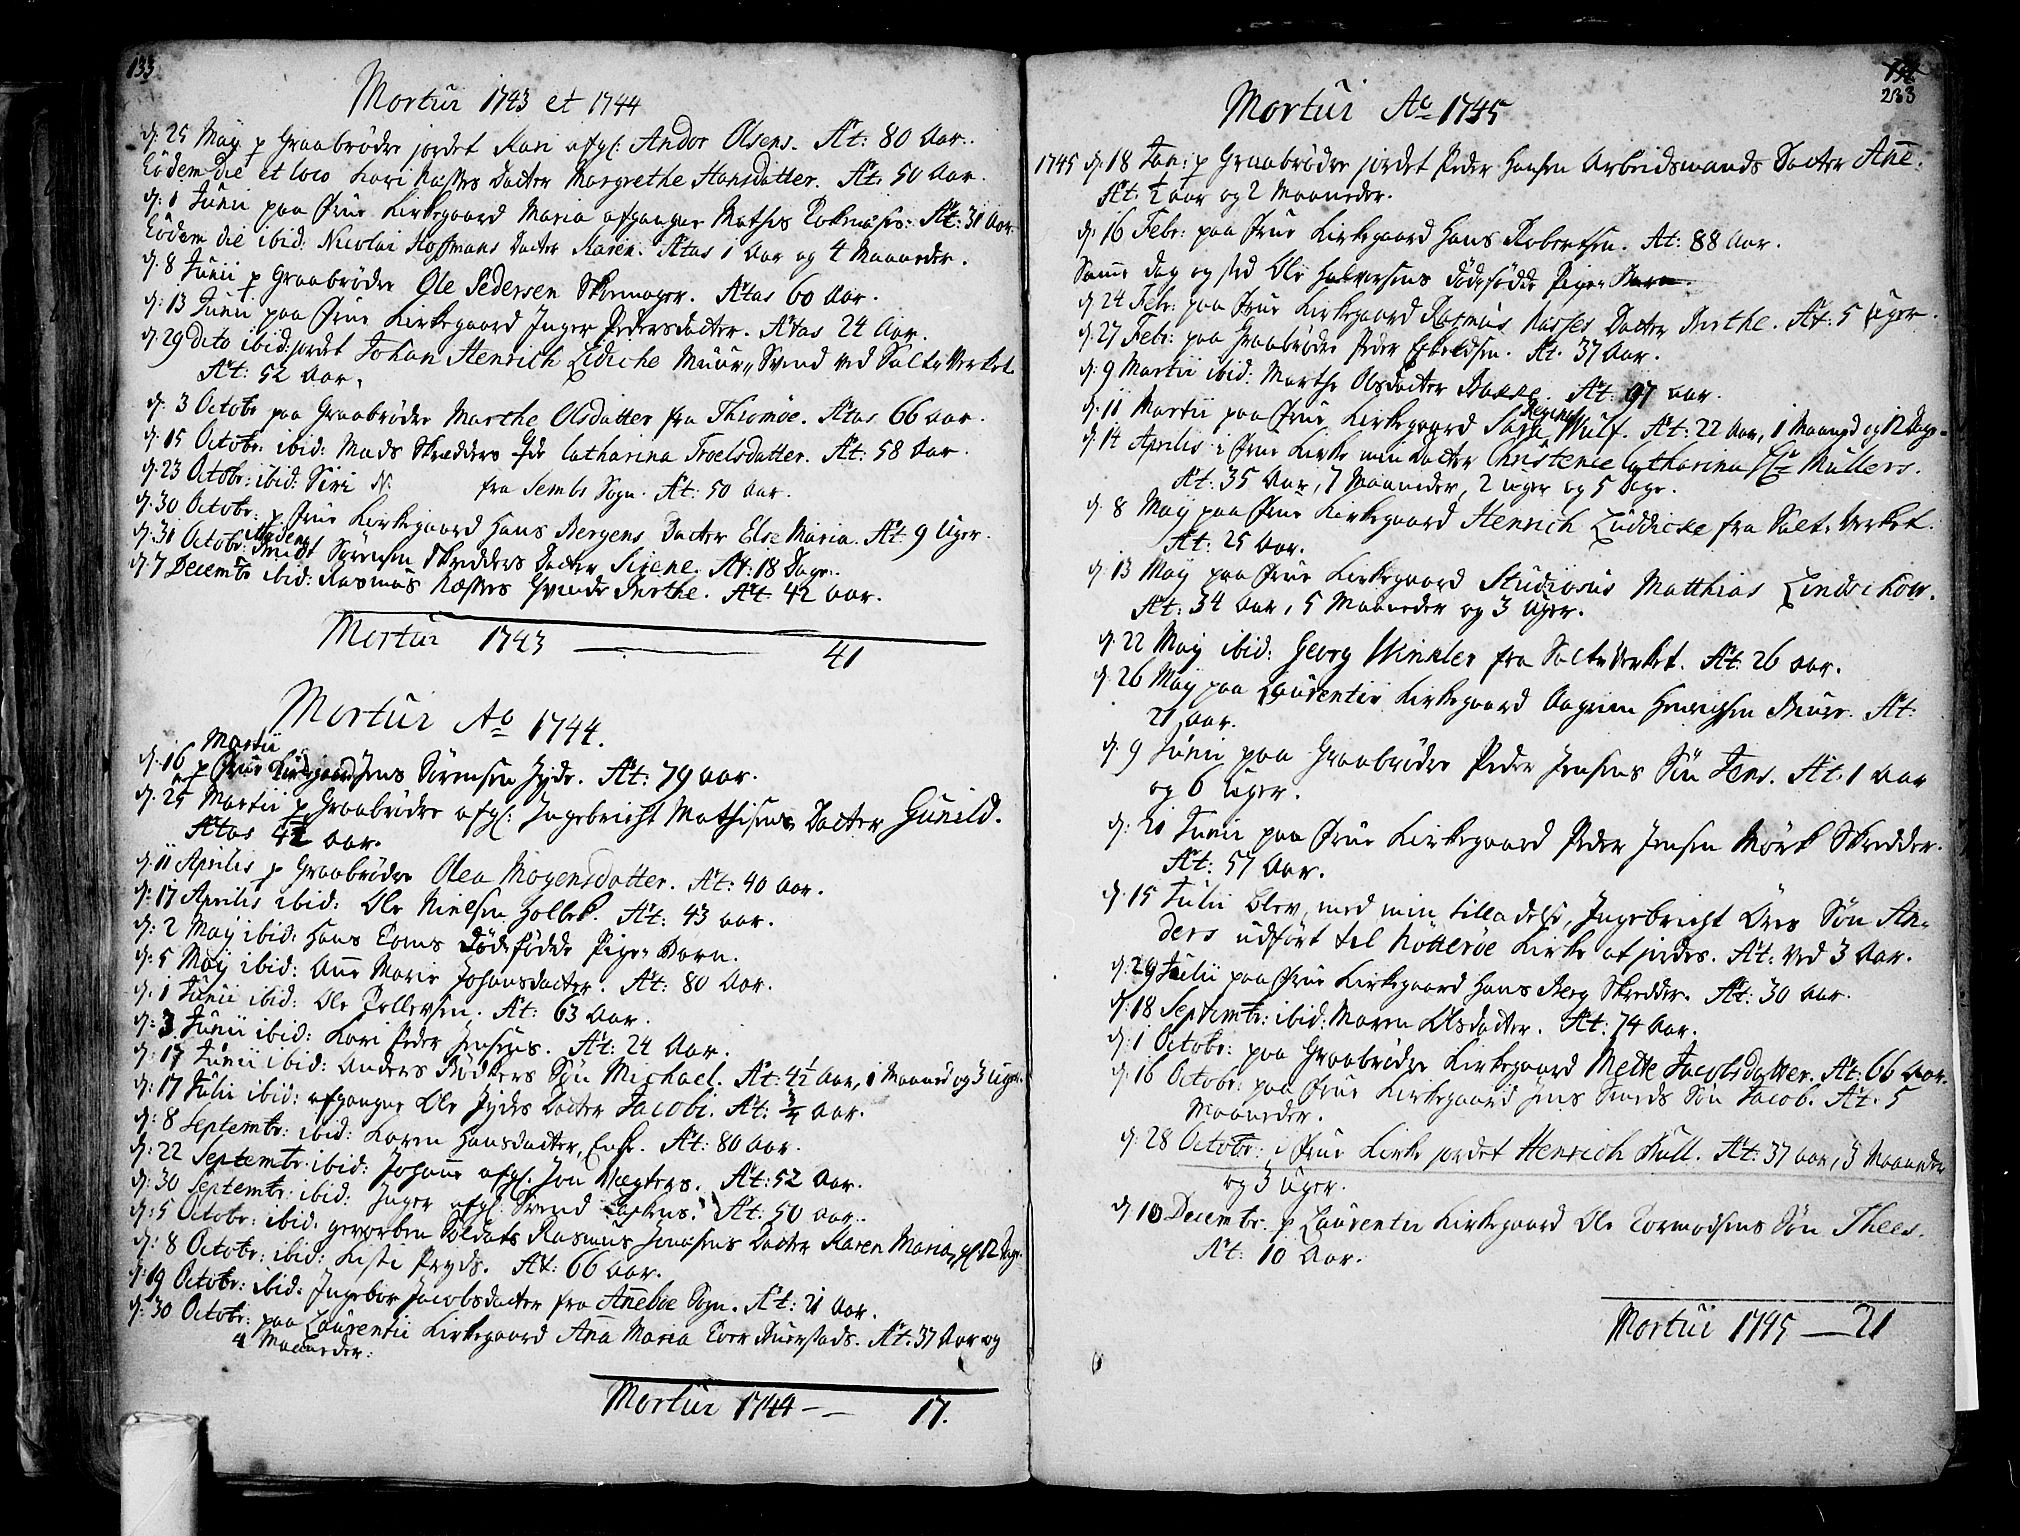 133
Mortui 1743 et 1744
d: 25 Maij p Graabrödre jordet Kari afgl: Andor Olsens. Æt: 80 Aar.
Eödem die et loco Kari Datter Margrethe Hansdatter. Æt: 50 Aar.
d: 1 Junii paa Frue Kirkegaard Maria afgangne Mathis Æt: 31 Aar.
Eodem die ibid: Nicolai Hoffmans Datter Karen. Ætas 1 Aar og 4 Maaneder.
d: 8 Junii p Graabrödre Ole Pedersen Skomager. Ætas 60 Aar.
d: 13 Junii paa Frue Kirkegaard Inger Pedersdatter. Ætas 24 Aar.
d: 29 Dito ibid: jordet Johan Henrich Lidiche Muur-Svend ved Salt-Verket
Æt: 52 Aar.
d: 3 Octobr paa Graabrödre Marthe Olsdatter fra Thiomöe. Ætas 66 Aar.
d: 15 Octobr: ibid: Mads Skredders Catharina Troelsdatter. Æt: 58 Aar.
d: 23 Octobr: ibid: Siri N. fra Sembs Sogn. Æt: 50 Aar.
d: 30 Octobr: p Frue Kirkegaard Hans Bergens Datter Else Maria. Æt 9 Uger.
d: 31 Octobr: Sörensen Skredders Datter Sirene. Æt: 18 Dage.
d: 7 Decembr ibid: Rasmus Qvinde Berthe. Æt: 42 Aar.
Mortui 1743 41
Mortui Ao 1744.
Martii
d: 16 p Frue Kirkegaard Jens Sörensen Hyde. Æt: 79 aar.
d: 25 Martii p Graabrödre afgl: Ingebricht Mathisens Datter Gunild.
Ætas aar.
d: 11 Aprilis p Graabrödre Olea Mogensdatter. Æt: 40 Aar.
d: 17 Aprilis ibid: Ole Nielsen Holbek. Æt: 43 aar.
d: 2 Maij ibid: Hans Toms Dödfödde Pige-Barn.
d: 5 Maij ibid: Ane Marie Johansdatter. Æt: 80 Aar.
d: 1 Junii ibid: Ole Tollevsen. Æt: 63 Aar.
d: 3 Junii ibid: Kari Peder Jensens. Æt: 24 Aar.
d: 17 Junii ibid: Anders Bödkers Sön Michael. Æt: 4½ Aar, 1 Maaned og 3 Uger.
d: 17 Julii ibid: afgangne Ole Jydes Datter Jacobi. Æt: ¾ Aar.
d: 8 Septembr: ibid: Karen Hansdatter, Enke. Æt: 80 Aar.
d: 22 Septembr: ibid: Johanne afgl. Jon Vegters. Æt: 52 Aar.
d: 30 Septembr: ibid: Inger afgl: Svend Æt: 50 aar.
d: 5 Octobr: ibid: gevorben Soldats Rasmus Jonasens Datter Karen Maria, gl: 12 Dage.
d: 8 Octobr: ibid: Kisti Pryds. Æt: 66 aar.
d: 19 Octobr: ibid: Ingebor Jacobsdatter fra Aneböe Sogn. Æt: 21 Aar.
d: 30 Octobr: paa Laurentii Kirkegaard Ana Maria Æt: 37 Aar og
4 Maaneder.
Mortui 1744 – – 17.
233
Mortui Ao 1745
1745 d: 18 Jan: p Graabrödre jordet Peder Hansen Arbeidsmands Datter Ane.
Æt: ½ aar og 2 Maaneder.
d: 16 Febr: paa Frue Kirkegaard Hans Robertsen. Æt: 88 Aar.
Same dag og sted Ole Halvorsens Dödfödde Pige-Barn.
d: 24 Febr: paa Frue Kirkegaard Rasmus Datter Berthe. Æt: 5 Uger.
d: 27 Febr: paa Graabrödre Peder Eskeldsen. Æt. 37 Aar.
d: 9 Martii ibid: Marthe Olsdatter Æt: 97 aar.
d: 11 Martii paa Frue Kirkegaard Sara Regina Wulf. Æt: 22 Aar, 1 Maaned og 12 Dage.
d: 14 Aprilis i Frue Kirke min Datter Christence Catharina Müllers.
Æt: 35 Aar, 7 Maaneder, 2 Uger og 5 Dage.
d: 8 Maij paa Frue Kirkegaard Henrich Lüddicke fra Salt-Verket.
Æt: 25 Aar.
d: 13 Maij paa Frue Kirkegaard Studiosus Matthias Lindschouw.
Æt: 34 Aar, 5 Maaneder og 3 Uger.
d: 22 Maij ibid: Georg Winkler fra Salt-Verket. Æt: 26 aar.
d: 26 Maij paa Laurentii Kirkegaard Henrichsen Æt:
21 Aar.
d: 9 Junii paa Graabrödre Peder Jensens Sön Jens. Æt: 1 Aar
og 6 Uger.
d: 21 Junii paa Frue Kirkegaard Peder Jensen Mörk Skredder.
Æt: 57 Aar.
d: 15 Julii blev, med min tilladelse, Ingebricht Sön An-
ders udfört til Nötteröe Kirke at jordes. Æt: ved 3 Aar.
d: 29 Julii paa Frue Kirkegaard Hans Berg Skredder. Æt: 30 Aar.
d: 18 Septembr: ibid: Maren Olsdatter. Æt: 74 Aar.
d: 1 Octobr: paa Graabrödre Kirkegaard Mette Jacobsdatter. Æt: 66 Aar.
d: 16 Octobr: paa Frue Kirkegaard Jens Smeds Sön Jacob. Æt: 5
Maaneder.
d: 28 Octobr: i Frue Kirke jordet Henrich Kull. Æt: 37 aar, 3 Maaneder
og 3 Uger.
d: 10 Decembr: p Laurentii Kirkegaard Ole Tormodsens Sön Thees.
Æt: 10 Aar.
Mortui 1745 — 21